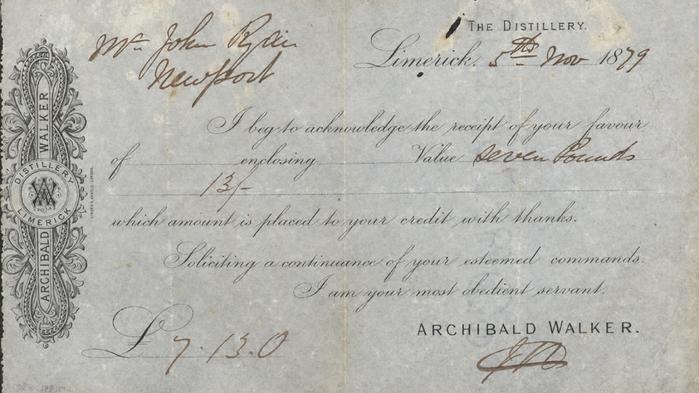 THE DISTILLERY.
Mr. John Ryan
Newport
Limerick. 5th Nov 1879
I beg to acknowledge the receipt of your favour
of enclosing Value Seven Pounds
13/-
which amount is placed to your credit with thanks.
Soliciting a continuance of your esteemed commands.
I am your most obedient servant.
ARCHIBALD WALKER.
£ 7.13.0
ARCHIBALD WALKER
DISTILLERY
LIMERICK